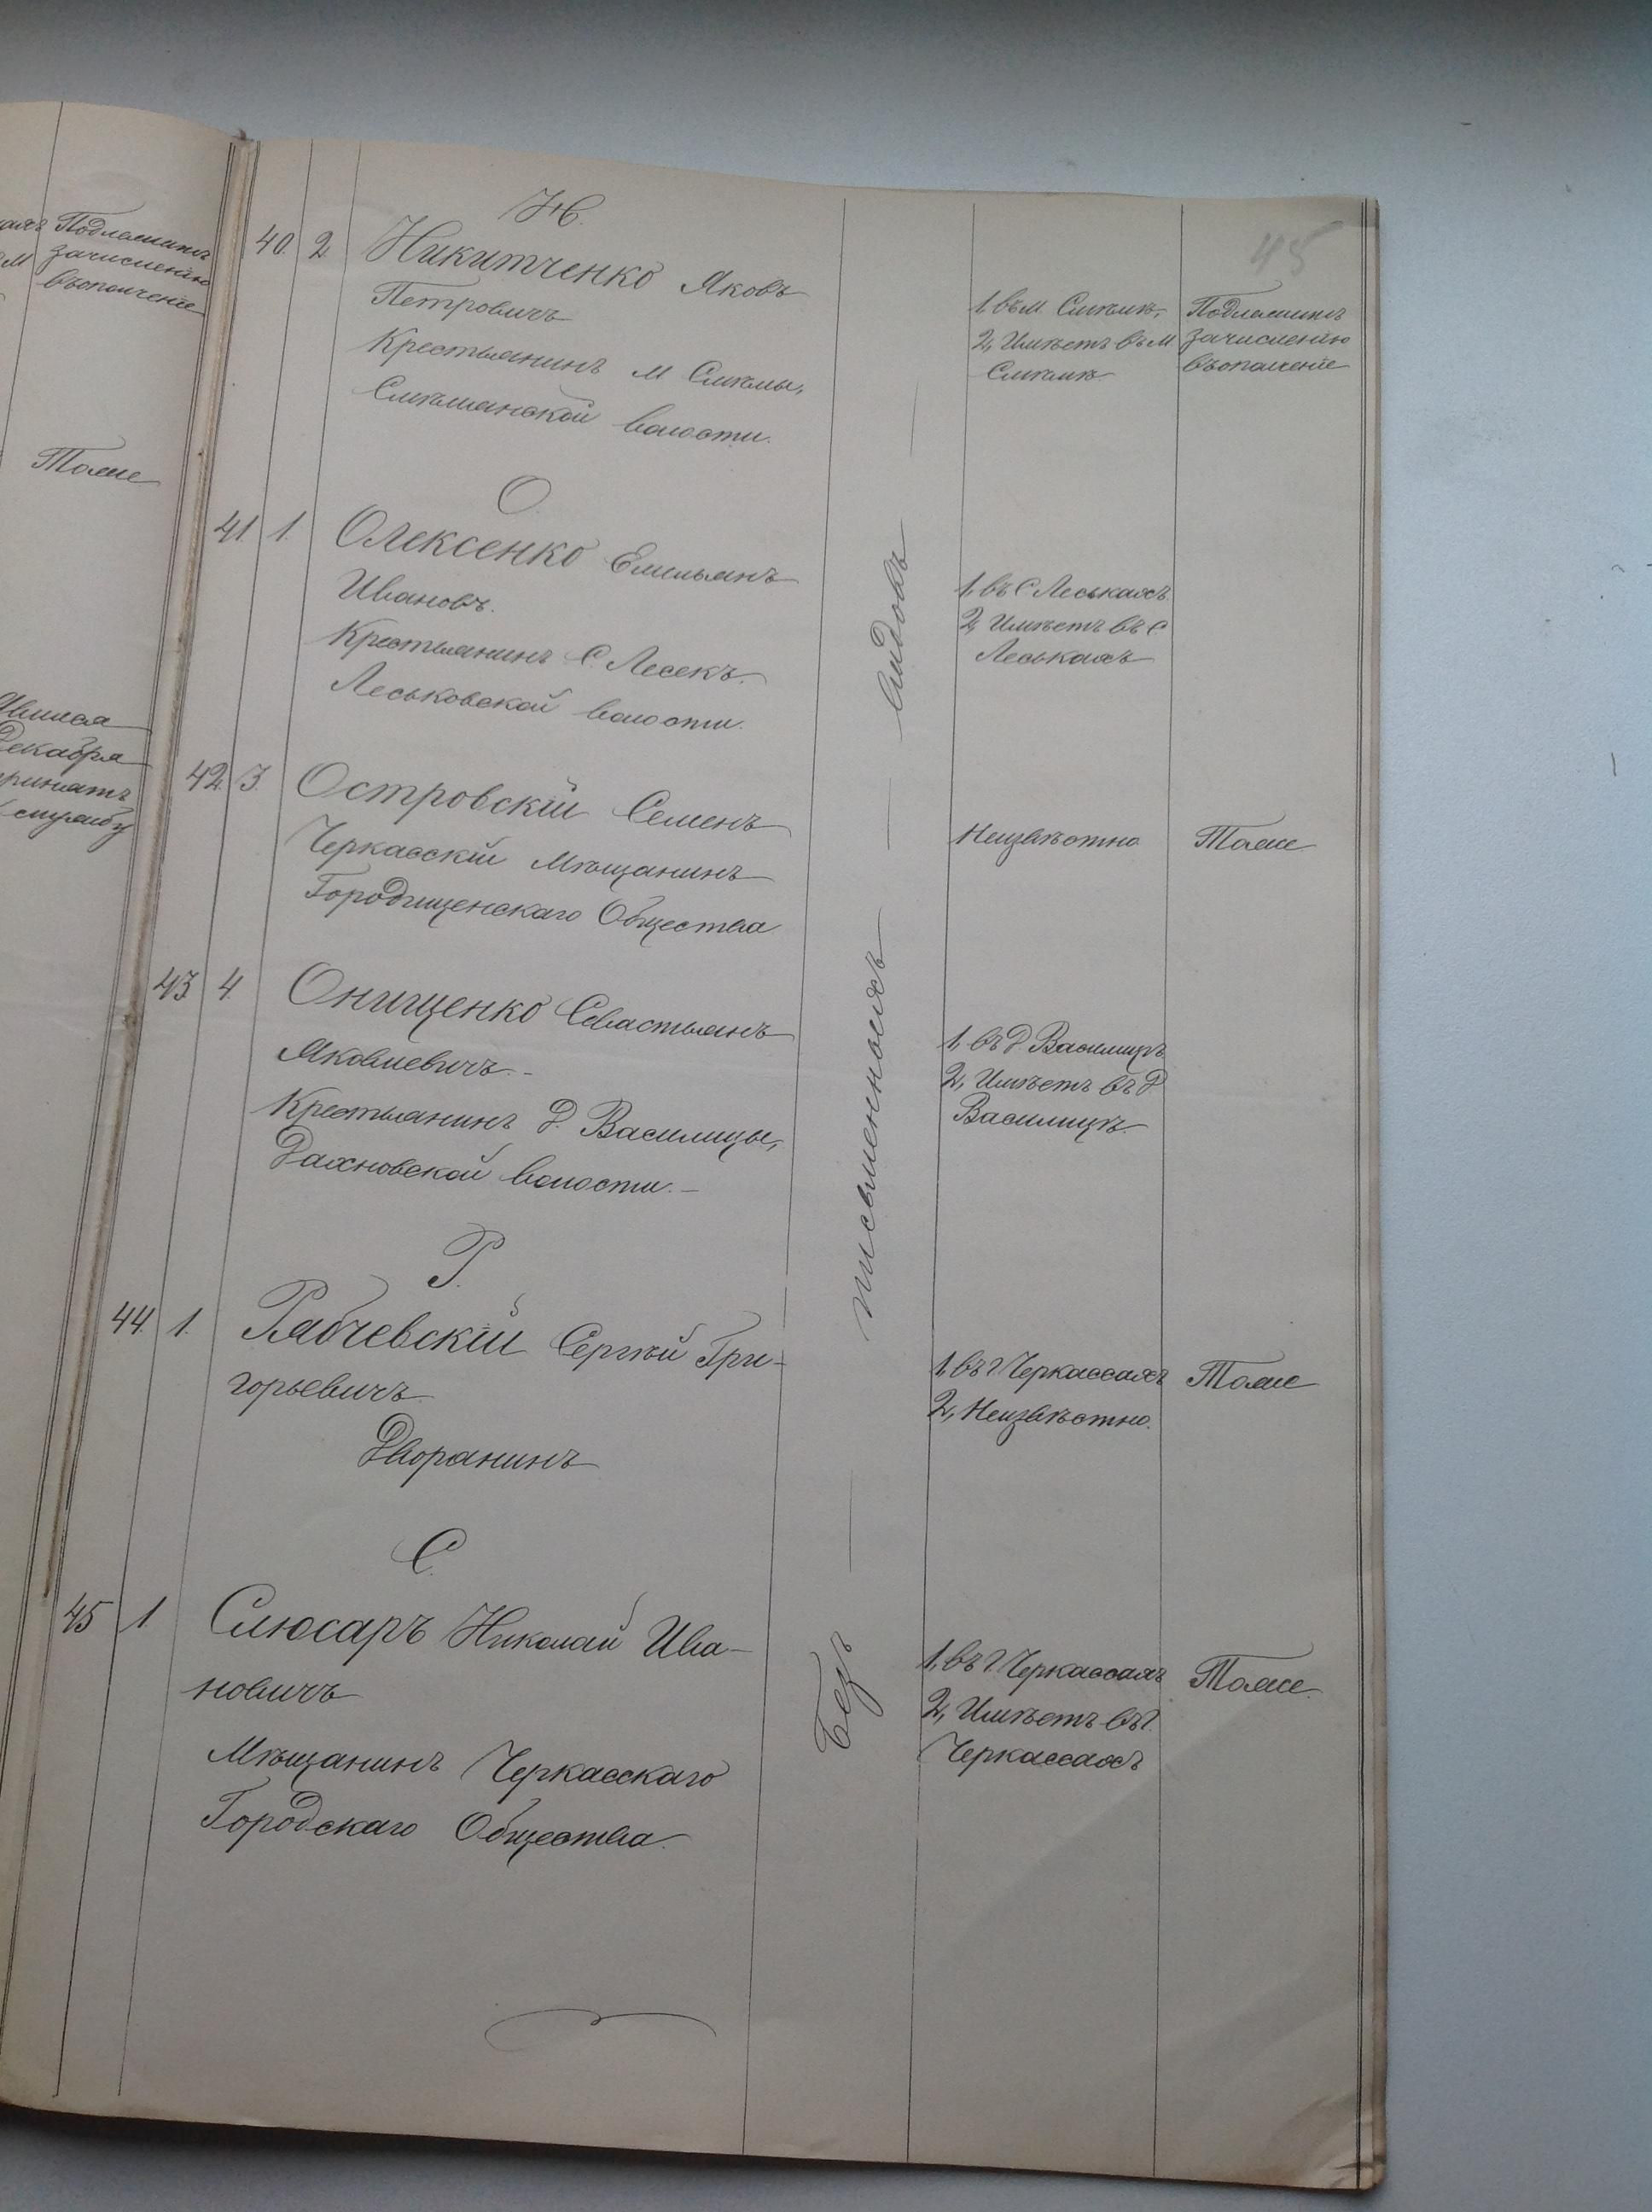 45
Подлежитъ
зачисленію
въ ополченіе
Тоже
Явился
Декабря
принятъ
службу
Н.
40. 2 Никитченко Яковъ
Петровичъ
Крестьянинъ м Смѣлы,
Смѣлянской волости.
1, въ м. Смѣлѣ,
2, Имѣетъ въ м
Смѣлѣ.
Подлежитъ
зачисленію
въ ополченіе
О.
41 1. Олексенко Емильянъ
Ивановъ.
Крестьянинъ С. Лесекъ.
Леськовской волости.
1, въ С Леськахъ
2, Имѣетъ въ С
Леськахъ
42. 3. Островскій Семенъ
Черкасскій Мѣщанинъ
Городищенскаго Общества
Неизвѣстно
Тоже
43 4. Онищенко Севастьянъ
Яковлевичъ.-
Крестьянинъ д. Василицы,
Дахновской волости.-
1, въ д. Василицѣ
2, Имѣетъ въ д
Василицѣ.
Р.
44. 1. Рябчевскій Сергѣй Гри-
горьевичъ
Дворянинъ
1, въ г. Черкассахъ
2, Неизвѣстно.
Тоже
С.
45 1 Слюсаръ Николай Ива-
новичъ
Мѣщанинъ Черкасскаго
Городскаго Общества.
1, въ г. Черкассахъ
2, Имѣетъ въ г.
Черкассахъ
Тоже.
Безъ — письменныхъ — видовъ —